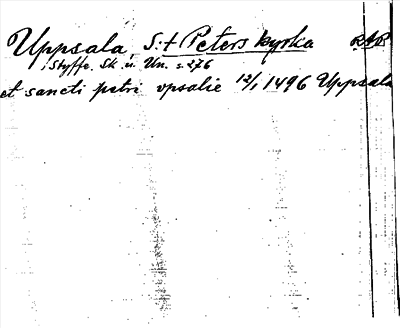 Uppsala, S:t Peters kyrka RAP
Styffe. Sk. u. Un. s. 276
et sancti petri upsalie 12/1 1496 Uppsala